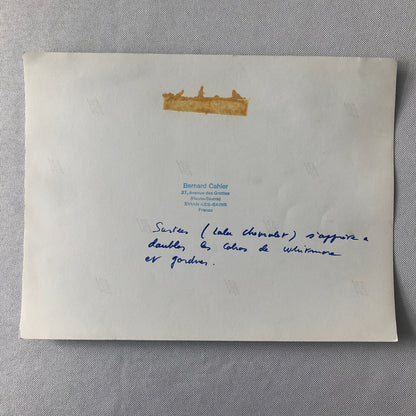 Bernard Cahier
27, Avenue des Grottes
(Haute-Savoie)
EVIAN-LES-BAINS
France
Surtees (Lola Chevrolet) s'apprête a
doubler les Cobras de Whitmore
et Gardner.